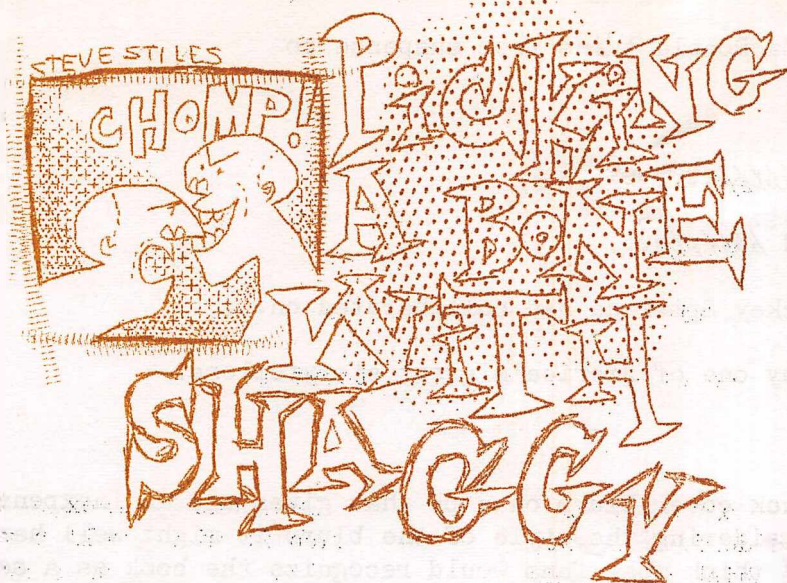 STEVE STILES
CHOMP!
PiCKiNG
A BONE
WiTH
SHAGGY